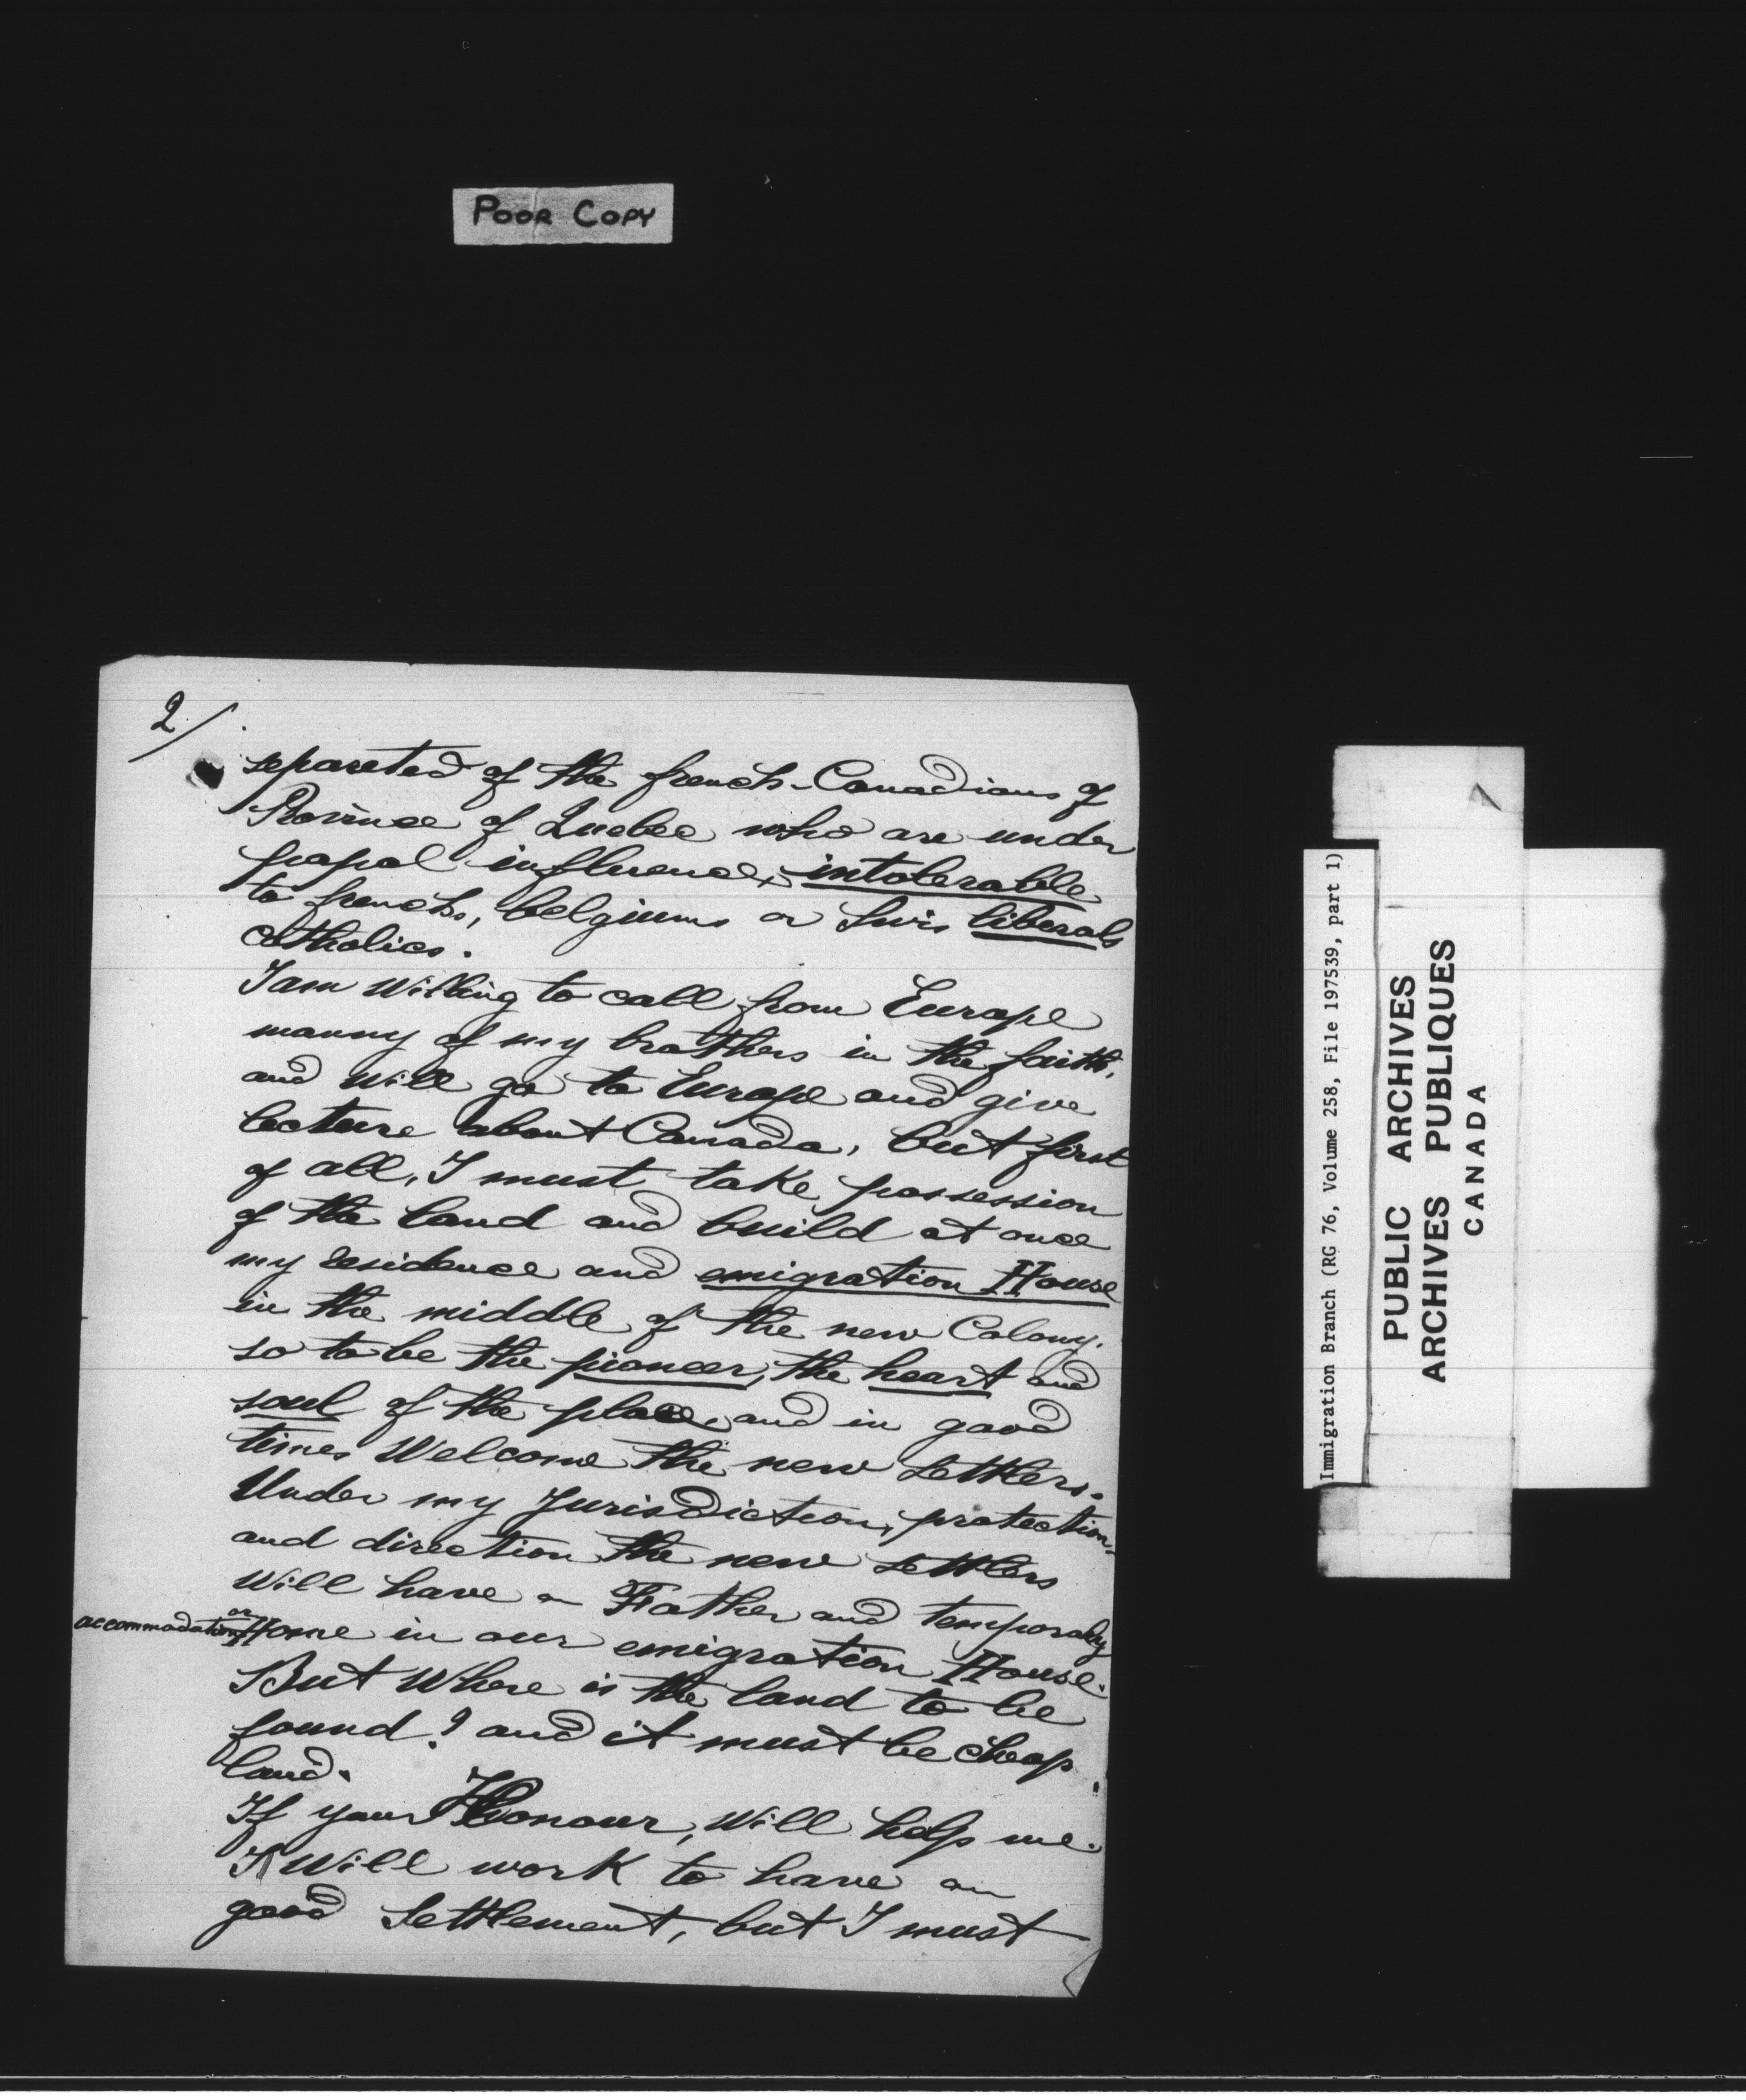 POOR COPY
2/
separeted of the french-Canadians of
Province of Quebec who are under
papal influence, intolerable
to frenchs, belgiums or Swis liberals
catholics.
I am Willing to call from Europe
manny of my brothers in the faith,
and will go to Europe and give
lecture about Canada, but first
of all, I must take possession
of the land and build at once
my residence and emigration House
in the middle of the new Colony.
so to be the pioneer, the heart and
soul of the place, and in good
times Welcome the new settlers.
Under my Jurisdiction, protection
and direction the new settlers
Will have a Father and temporaly
accommodation or Home in our emigration House.
But Where is the land to be
found? and it must be cheap
land.
If your Honour, Will help me.
I Will work to have a
good Settlement, but I must
Immigration Branch (RG 76, Volume 258, File 197539, part 1)
PUBLIC ARCHIVES
ARCHIVES PUBLIQUES
CANADA